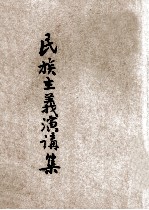 民族主義演講集